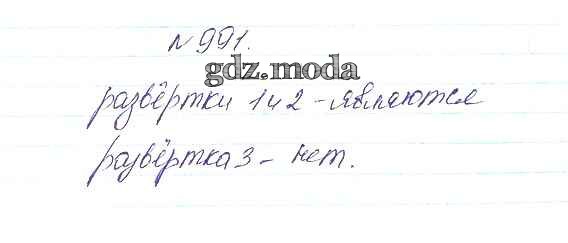 №991.
gdz.moda
развёртки 1 и 2 - являются
развёртка 3 - нет.